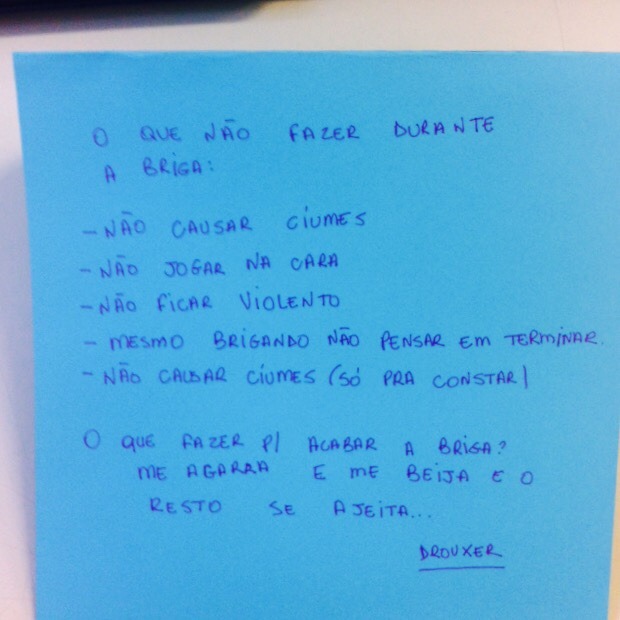 O QUE NÃO FAZER DURANTE
A BRIGA:
- NÃO CAUSAR CIUMES
- NÃO JOGAR NA CARA
- NÃO FICAR VIOLENTO
- MESMO BRIGANDO NÃO PENSAR EM TERMINAR.
- NÃO CAUSAR CIUMES (SÓ PRA CONSTAR)
O QUE FAZER P/ ACABAR A BRIGA?
ME AGARRA E ME BEIJA E O
RESTO SE AJEITA...
DROUXER